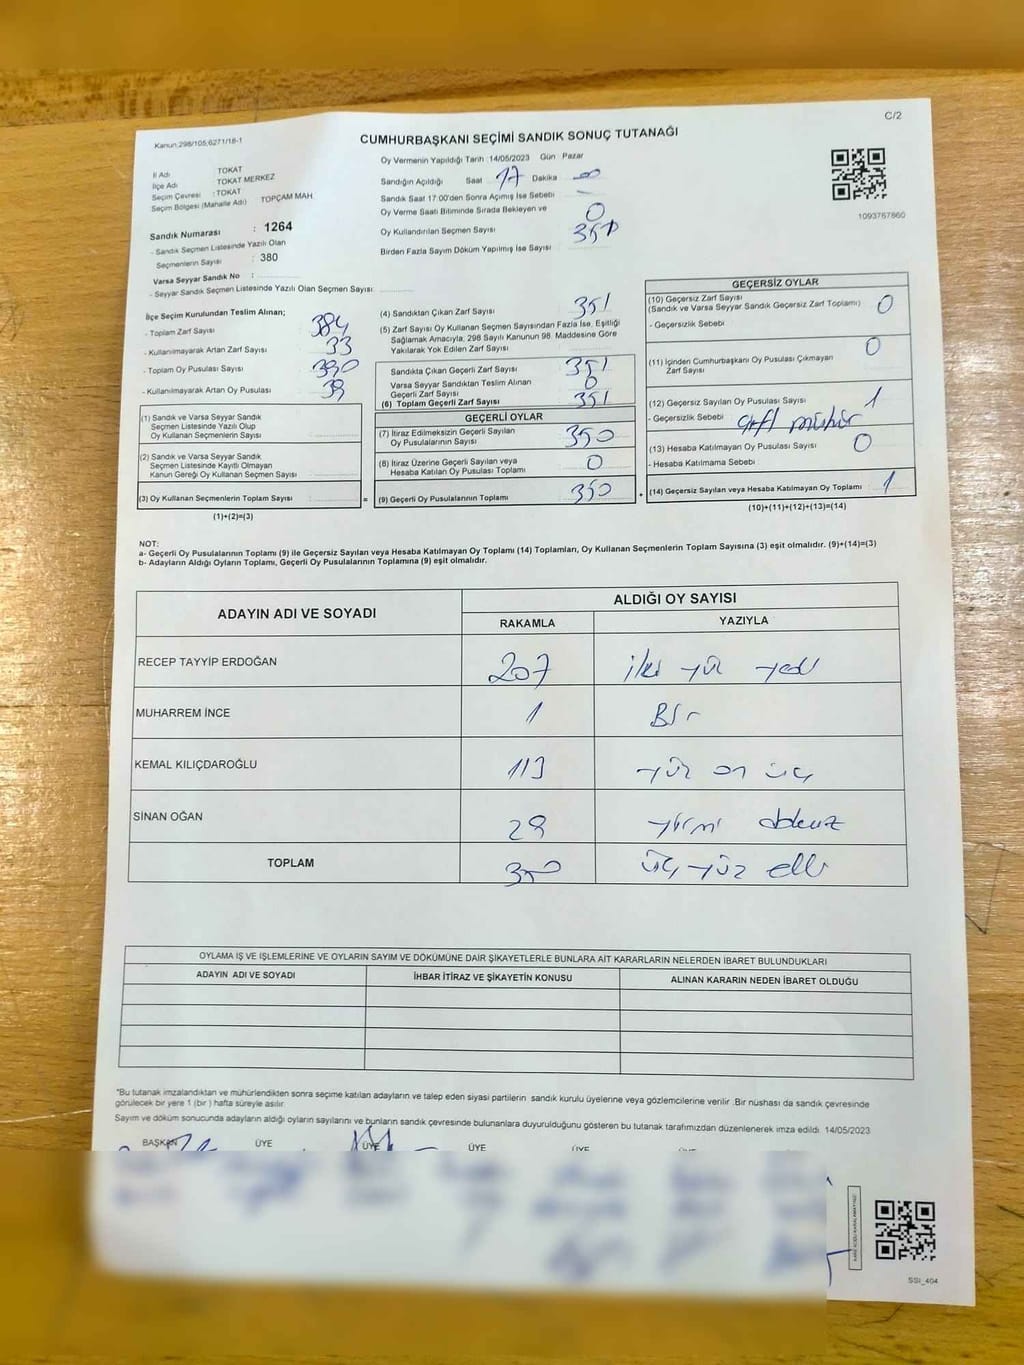 C/2
Kanun;298/105,6271/18-1
CUMHURBAŞKANI SEÇİMİ SANDIK SONUÇ TUTANAĞI
Oy Vermenin Yapıldığı Tarih :14/05/2023 Gün Pazar
İl Adı TOKAT
İlçe Adı TOKAT MERKEZ
Seçim Çevresi : TOKAT
Seçim Bölgesi (Mahalle Adı) TOPÇAM MAH
Sandık Numarası : 1264
- Sandık Seçmen Listesinde Yazılı Olan
Seçmenlerin Sayısı : 380
Varsa Seyyar Sandık No :
- Seyyar Sandık Seçmen Listesinde Yazılı Olan Seçmen Sayısı:
Sandığın Açıldığı Saat 17 Dakika 00
Sandık Saat 17.00'den Sonra Açımış İse Sebebi
Oy Verme Saati Bitiminde Sırada Bekleyen ve
Oy Kullandırılan Seçmen Sayısı 0
351
Birden Fazla Sayım Döküm Yapılmış İse Sayısı
1093767860
İlçe Seçim Kurulundan Teslim Alınan;
- Toplam Zarf Sayısı 384
- Kullanılmayarak Artan Zarf Sayısı 33
- Toplam Oy Pusulası Sayısı 390
- Kullanılmayarak Artan Oy Pusulası 39
(1) Sandık ve Varsa Seyyar Sandık
Seçmen Listesinde Yazılı Olup
Oy Kullanan Seçmenlerin Sayısı
(2) Sandık ve Varsa Seyyar Sandık
Seçmen Listesinde Kayıtlı Olmayan
Kanun Gereği Oy Kullanan Seçmen Sayısı
(3) Oy Kullanan Seçmenlerin Toplam Sayısı =
(1)+(2)=(3)
(4) Sandıktan Çıkan Zarf Sayısı 351
(5) Zarf Sayısı Oy Kullanan Seçmen Sayısından Fazla İse, Eşitliği
Sağlamak Amacıyla, 298 Sayılı Kanunun 98. Maddesine Göre
Yakılarak Yok Edilen Zarf Sayısı
Sandıkta Çıkan Geçerli Zarf Sayısı 351
Varsa Seyyar Sandıktan Teslim Alınan
Geçerli Zarf Sayısı 0
(6) Toplam Geçerli Zarf Sayısı 351
GEÇERLİ OYLAR
(7) İtiraz Edilmeksizin Geçerli Sayılan
Oy Pusulalarının Sayısı 350
(8) İtiraz Üzerine Geçerli Sayılan veya
Hesaba Katılan Oy Pusulası Toplamı 0
(9) Geçerli Oy Pusulalarının Toplamı 350 +
GEÇERSİZ OYLAR
(10) Geçersiz Zarf Sayısı
(Sandık ve Varsa Seyyar Sandık Geçersiz Zarf Toplamı) 0
- Geçersizlik Sebebi
(11) İçinden Cumhurbaşkanı Oy Pusulası Çıkmayan
Zarf Sayısı 0
(12) Geçersiz Sayılan Oy Pusulası Sayısı 1
- Geçersizlik Sebebi çift mühür
(13) Hesaba Katılmayan Oy Pusulası Sayısı 0
- Hesaba Katılmama Sebebi
(14) Geçersiz Sayılan veya Hesaba Katılmayan Oy Toplamı 1
(10)+(11)+(12)+(13)=(14)
NOT:
a- Geçerli Oy Pusulalarının Toplamı (9) ile Geçersiz Sayılan veya Hesaba Katılmayan Oy Toplamı (14) Toplamları, Oy Kullanan Seçmenlerin Toplam Sayısına (3) eşit olmalıdır. (9)+(14)=(3)
b- Adayların Aldığı Oyların Toplamı, Geçerli Oy Pusulalarının Toplamına (9) eşit olmalıdır.
ADAYIN ADI VE SOYADI ALDIĞI OY SAYISI
RAKAMLA YAZIYLA
RECEP TAYYİP ERDOĞAN 207 iki yüz yedi
MUHARREM İNCE 1 Bir
KEMAL KILIÇDAROĞLU 113 yüz on üç
SİNAN OĞAN 29 yirmi dokuz
TOPLAM 350 üç yüz elli
OYLAMA İŞ VE İŞLEMLERİNE VE OYLARIN SAYIM VE DÖKÜMÜNE DAİR ŞİKAYETLERLE BUNLARA AİT KARARLARIN NELERDEN İBARET BULUNDUKLARI
ADAYIN ADI VE SOYADI İHBAR İTİRAZ VE ŞİKAYETİN KONUSU ALINAN KARARIN NEDEN İBARET OLDUĞU
*Bu tutanak imzalandıktan ve mühürlendikten sonra seçime katılan adayların ve talep eden siyasi partilerin sandık kurulu üyelerine veya gözlemcilerine verilir .Bir nüshası da sandık çevresinde
görülecek bir yere 1 (bir ) hafta süreyle asılır.
Sayım ve döküm sonucunda adayların aldığı oyların sayılarını ve bunların sandık çevresinde bulunanlara duyurulduğunu gösteren bu tutanak tarafımızdan düzenlenerek imza edildi. 14/05/2023
BAŞKAN ÜYE ÜYE ÜYE ÜYE ÜYE
SSI_404